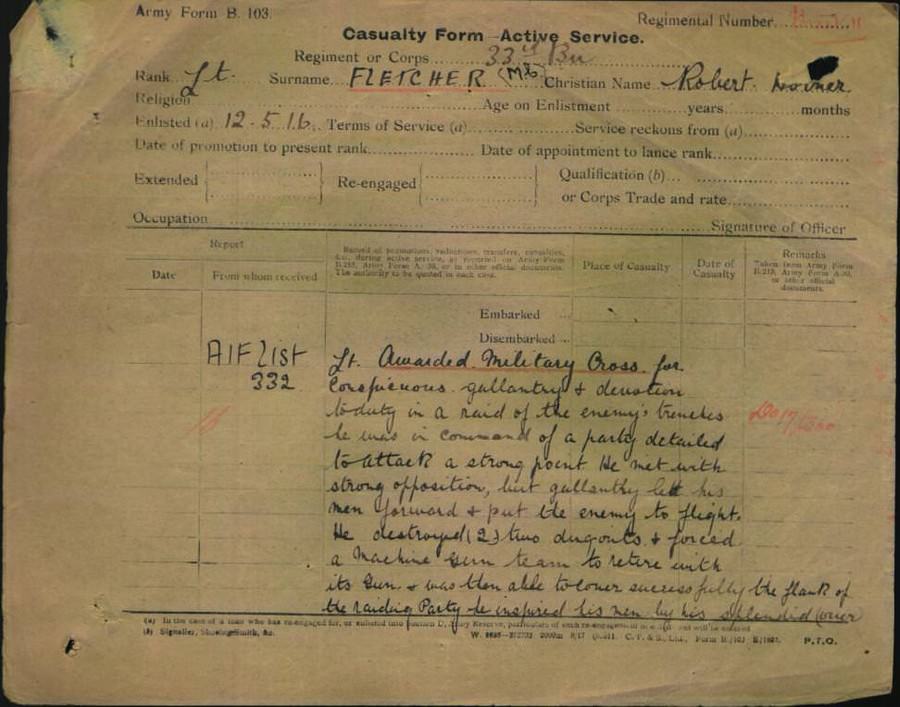 Army Form B. 103.
Regimental Number
Casualty Form—Active Service.
Regiment or Corps 33rd Bn
Rank Lt. Surname FLETCHER (MC) Christian Name Robert
Religion Age on Enlistment years months
Enlisted (a) 12.5.16. Terms of Service (a) Service reckons from (a)
Date of promotion to present rank Date of appointment to lance rank
Extended Re-engaged Qualification (b)
or Corps Trade and rate
Occupation Signature of Officer
Report
Date From whom received
Record of promotions, reductions, transfers, casualties,
&c., during active service, as reported on Army Form
B.213, Army Form A. 36, or in other official documents.
The authority to be quoted in each case.
Place of Casualty
Date of Casualty
Remarks
Taken from Army Form
B.213, Army Form A.36,
or other official
documents.
Embarked
Disembarked
AIF List
332
Lt. Awarded Military Cross for
Conspicuous gallantry & devotion
to duty in a raid of the enemy's trenches
he was in command of a party detailed
to attack a strong point He met with
strong opposition, but gallantly led his
men forward & put the enemy to flight.
He destroyed (2) two dugouts & forced
a Machine Gun team to retire with
its Gun. & was then able to cover successfully the flank of
the raiding Party he inspired his men by his splendid (over
(a) In the case of a man who has re-engaged for, or enlisted into Section D, Army Reserve, particulars of such re-engagement or enlistment will be entered
(b) Signaller, Shoeing-Smith, &c.
P.T.O.